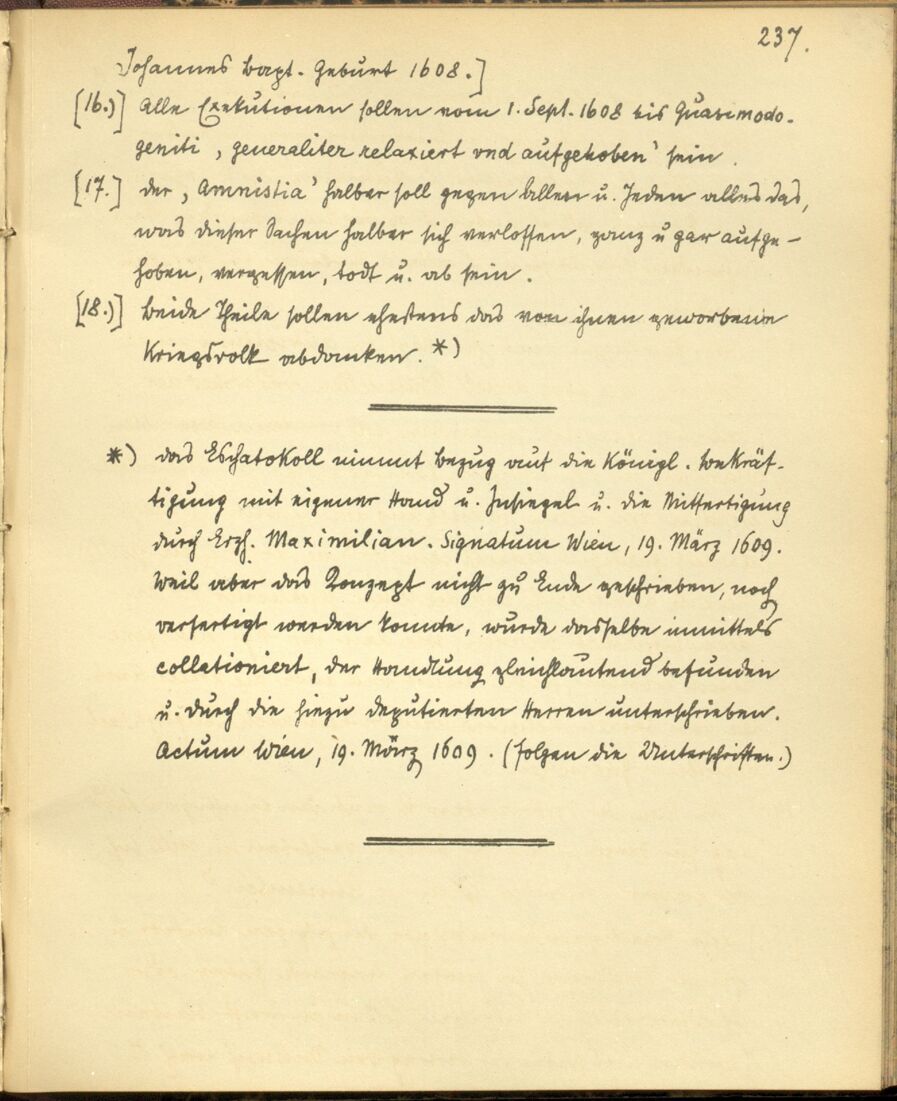 237.
Johannes bapt. Geburt 1608.]
[16.)] Alle Exekutionen sollen vom 1. Sept. 1608 bis Quasimodo-
geniti ‚generaliter relaxiert vnd aufgehoben' sein.
[17.] Der ‚Amnistia' halber soll gegen allen u. Jeden alles das,
was dieser Sachen halber sich verloffen, ganz u gar aufge-
hoben, vergessen, todt u. ab sein.
[18.)] Beide Theile sollen ehestens das von ihnen geworbene
Kriegsvolk abdanken. *)
*) Das Eschatokoll nimmt Bezug auf die Königl. Bekräf-
tigung mit eigener Hand u. Insiegel u. die Mitfertigung
durch Erzh. Maximilian. Signatum Wien, 19. März 1609.
Weil aber das Konzept nicht zu Ende geschrieben, noch
verfertigt werden konnte, wurde dasselbe inmittels
collationiert, der Handlung gleichlautend befunden
u. durch die hiezu deputierten Herren unterschrieben.
Actum Wien, 19. März 1609. (folgen die Unterschriften.)